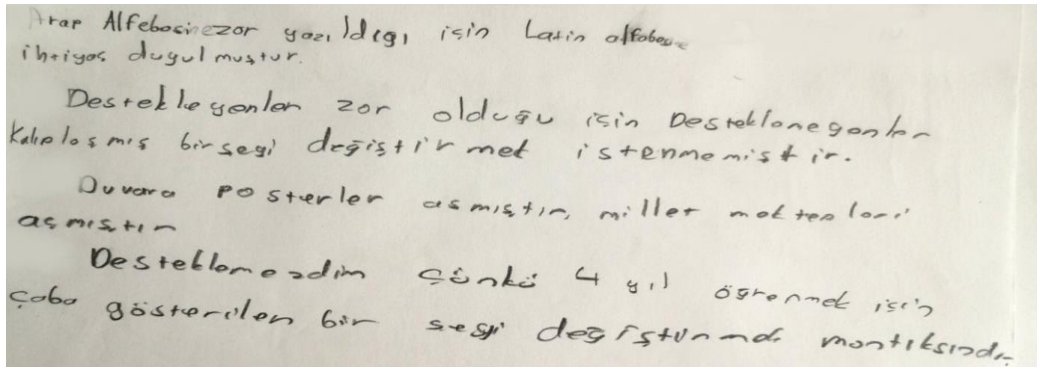 Arap Alfebosinezor yazıldığı için Latin alfabesine
ihtiyaç duyulmuştur.
Destekleyenler zor olduğu için Desteklemeyenler
Kalıplaşmış birşeyi değiştirmek istenmemiştir.
Duvara posterler asmıştır, millet mektepleri
açmıştır
Desteklemezdim çünkü 4 yıl öğrenmek için
çaba gösterilen bir şeyi değiştirmek mantıksızdır.